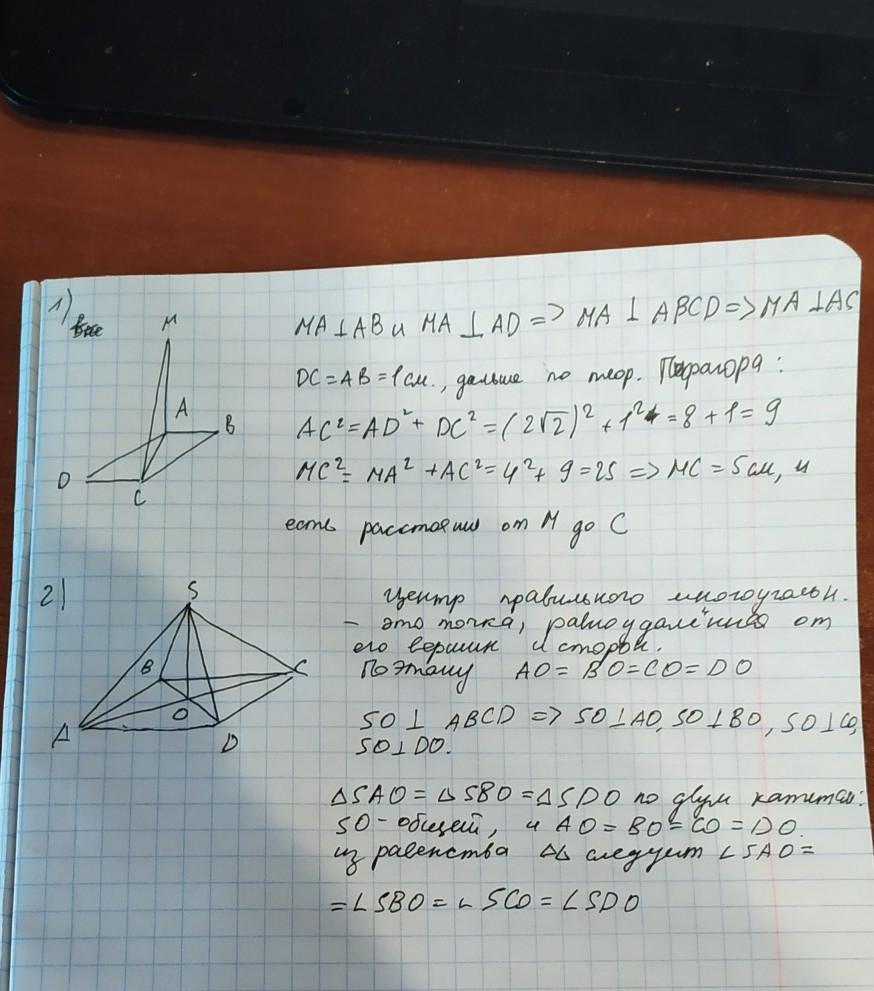 1)
M
A
B
D
C
MA ⊥ AB и MA ⊥ AD => MA ⊥ ABCD => MA ⊥ AC
DC = AB = 1 см., дальше по теор. Пифагора:
AC² = AD² + DC² = (2√2)² + 1² = 8 + 1 = 9
MC² = MA² + AC² = 4² + 9 = 25 => MC = 5 см, и
есть расстояния от M до C
2)
S
B
C
O
A
D
Центр правильного многоугольн.
- это точка, равноудалённая от
его вершин и сторон.
Поэтому AO = BO = CO = DO
SO ⊥ ABCD => SO ⊥ AO, SO ⊥ BO, SO ⊥ CO,
SO ⊥ DO.
△SAO = △SBO = △SDO по двум катетам:
SO - общей, и AO = BO = CO = DO.
из равенства △△ следует ∠SAO =
= ∠SBO = ∠SCO = ∠SDO